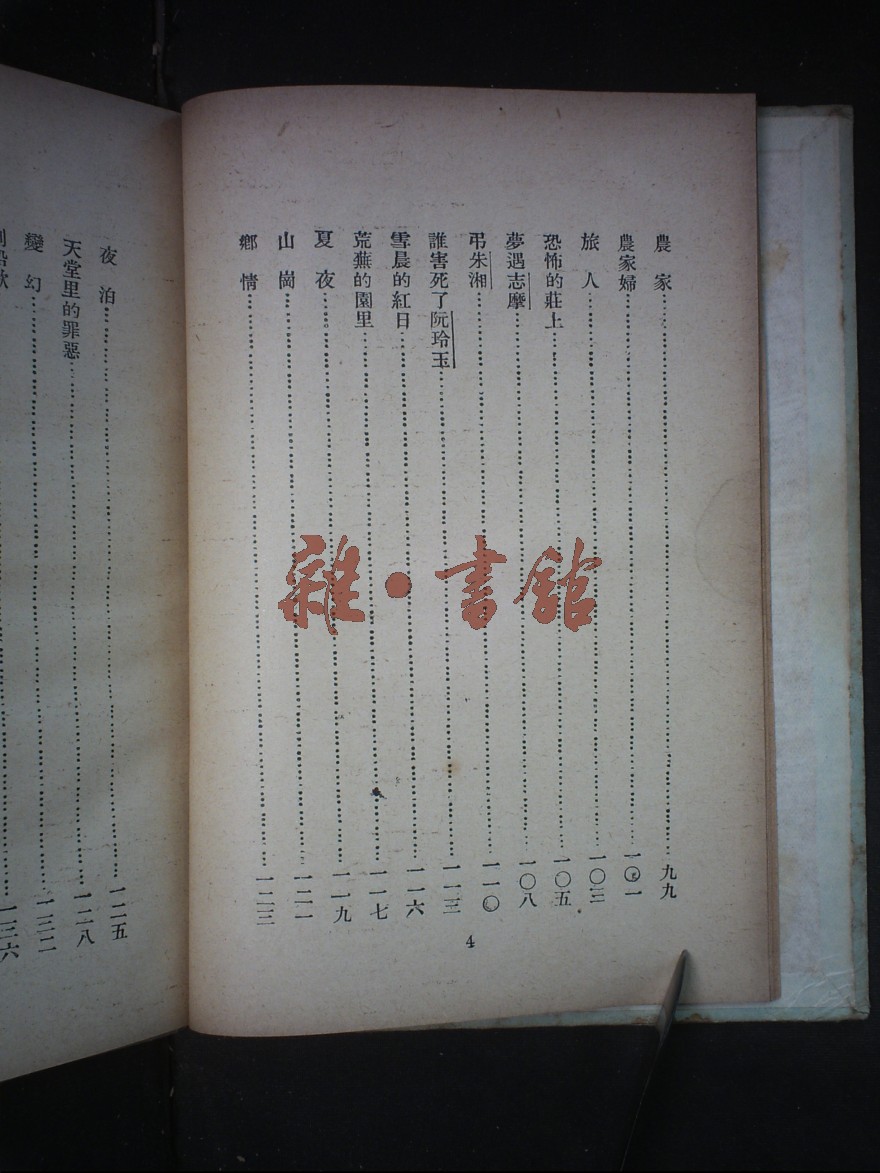 農家……九九
農家婦……一〇一
旅人……一〇三
恐怖的莊上……一〇五
夢遇志摩……一〇八
弔朱湘……一一〇
誰害死了阮玲玉……一一三
雪晨的紅日……一一六
荒蕪的園里……一一七
夏夜……一一九
山崗……一二一
鄉情……一二三
4
夜泊……一二五
天堂里的罪惡……一二八
變幻……一三二
一三六
雜·書館